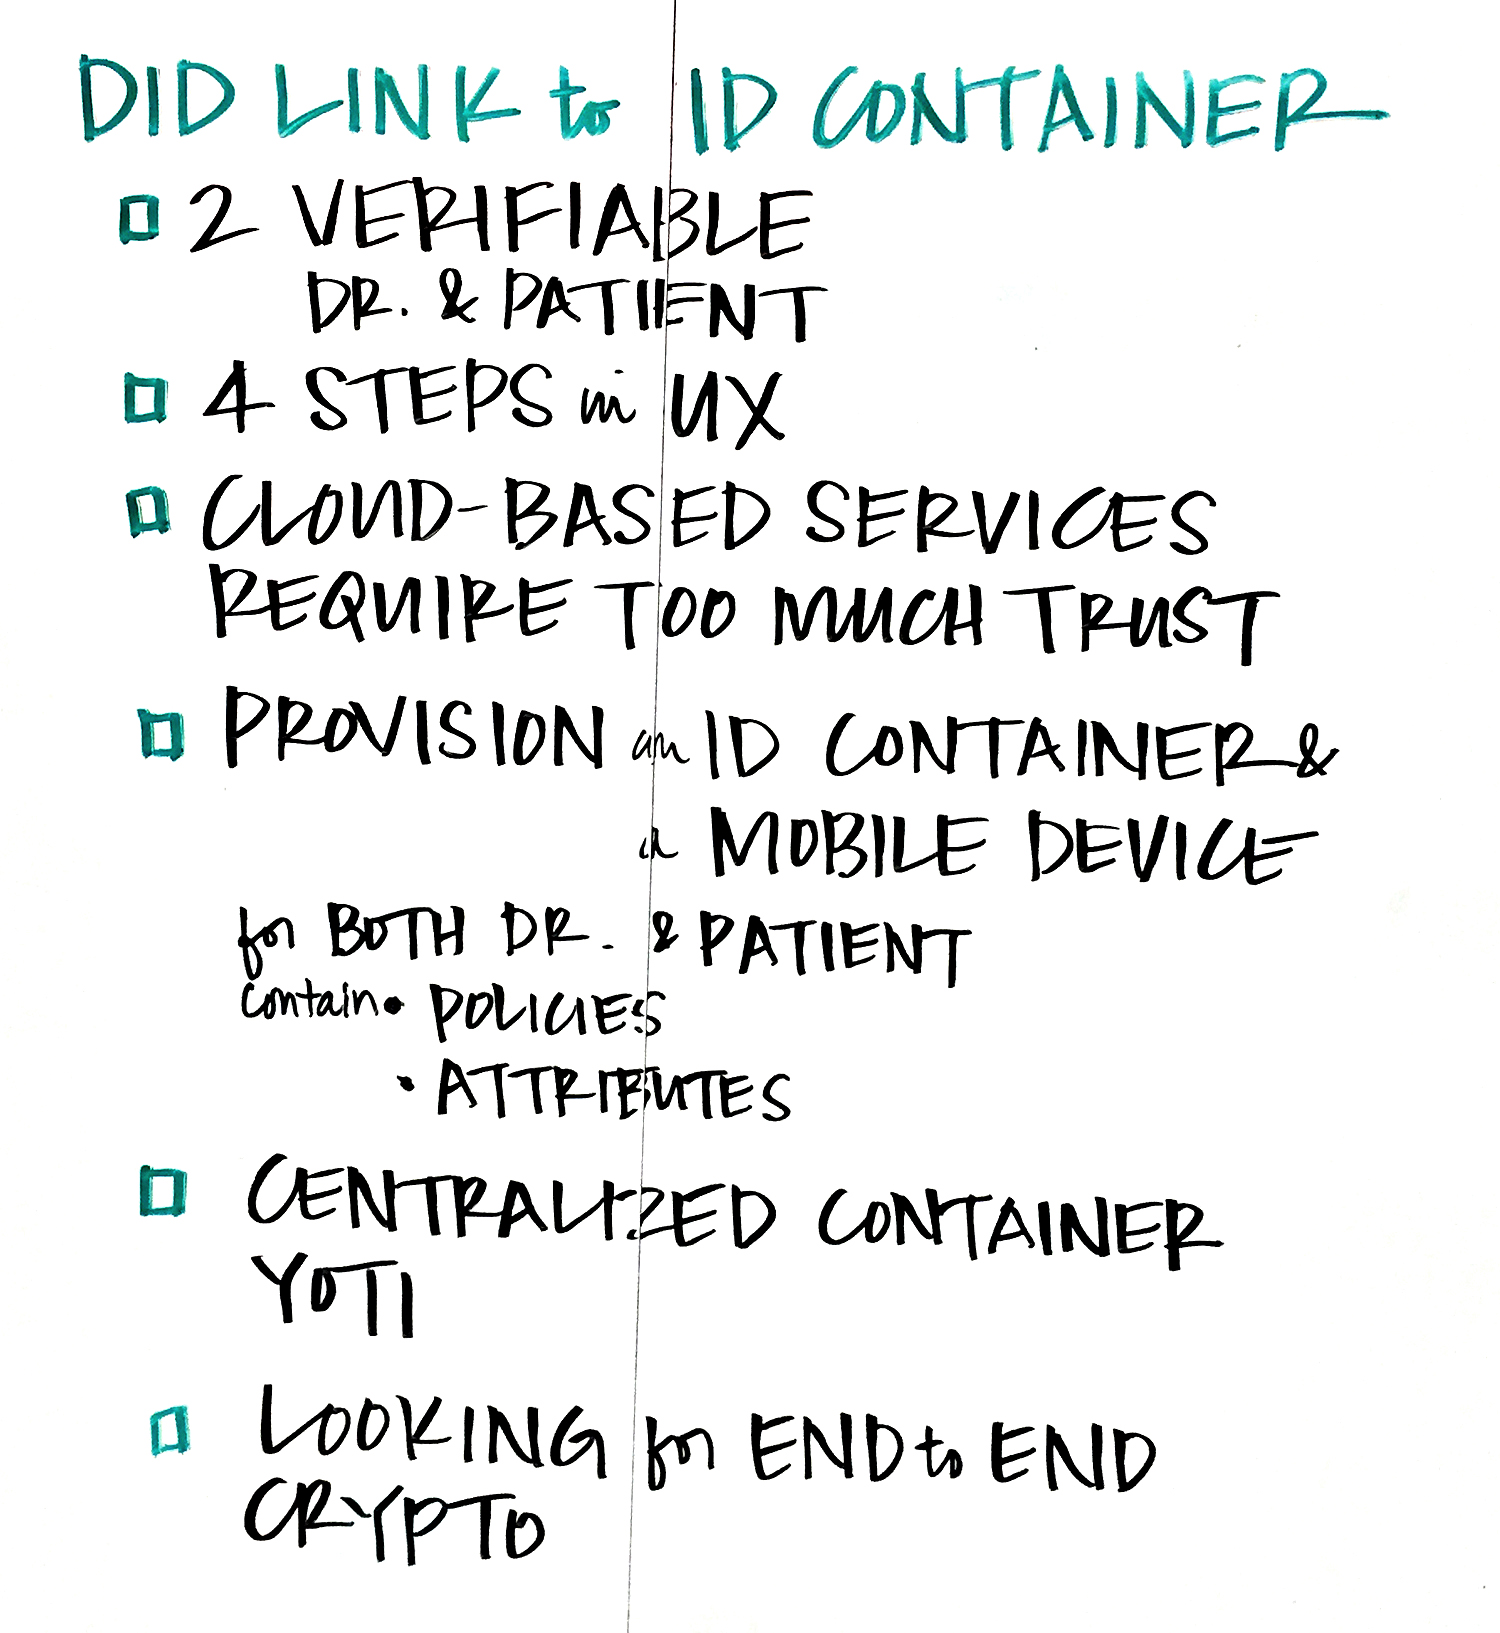 DID LINK to ID CONTAINER
2 VERIFIABLE
DR. & PATIENT
4 STEPS in UX
CLOUD-BASED SERVICES
REQUIRE TOO MUCH TRUST
PROVISION an ID CONTAINER &
a MOBILE DEVICE
for BOTH DR. & PATIENT
contain • POLICIES
• ATTRIBUTES
CENTRALIZED CONTAINER
YOTI
LOOKING for END to END
CRYPTO